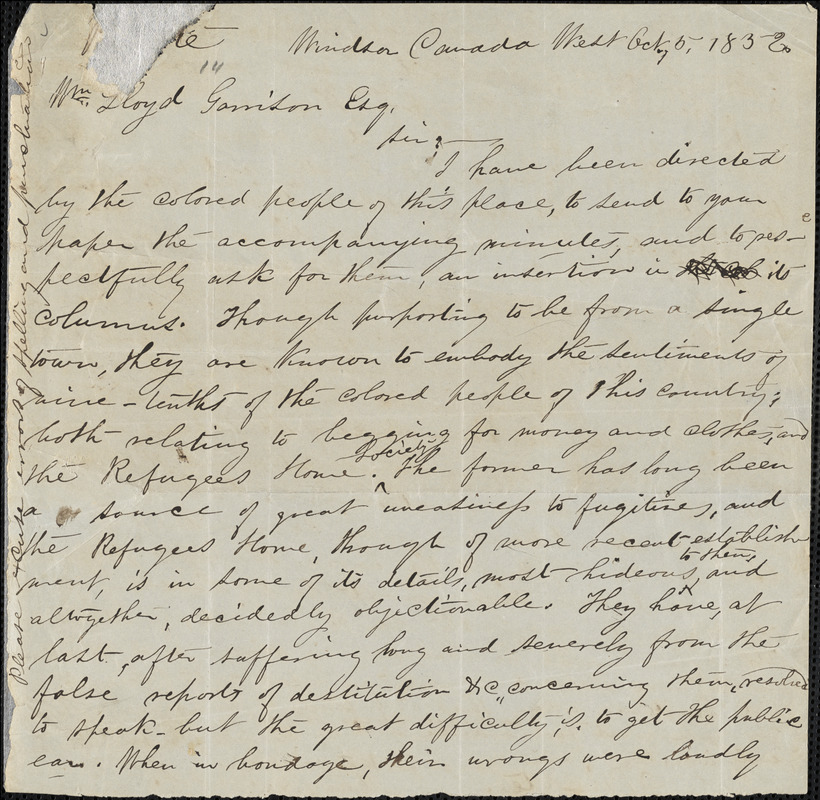 Windsor Canada West Oct, 5, 1852.
Wm. Lloyd Garrison Esq.
Sir;
I have been directed
by the colored people of this place, to send to your
paper the accompanying minutes, and to res-
pectfully ask for them, an insertion in its
columns. Though purporting to be from a single
town, they are known to embody the sentiments of
nine-tenths of the colored people of this country;
both relating to begging for money and clothes, and
the Refugees Home Society. The former has long been
a source of great uneasiness to fugitives, and
the Refugees Home, though of more recent establish
ment, is in some of its details, most hideous to them, and
altogether, decidedly objectionable. They have, at
last, after suffering long and severely from the
false reports of destitution &c, concerning them, resolved
to speak - but the great difficulty, is, to get the public
ear. When in bondage, their wrongs were loudly
Please excuse errors of spelling and punctuation.